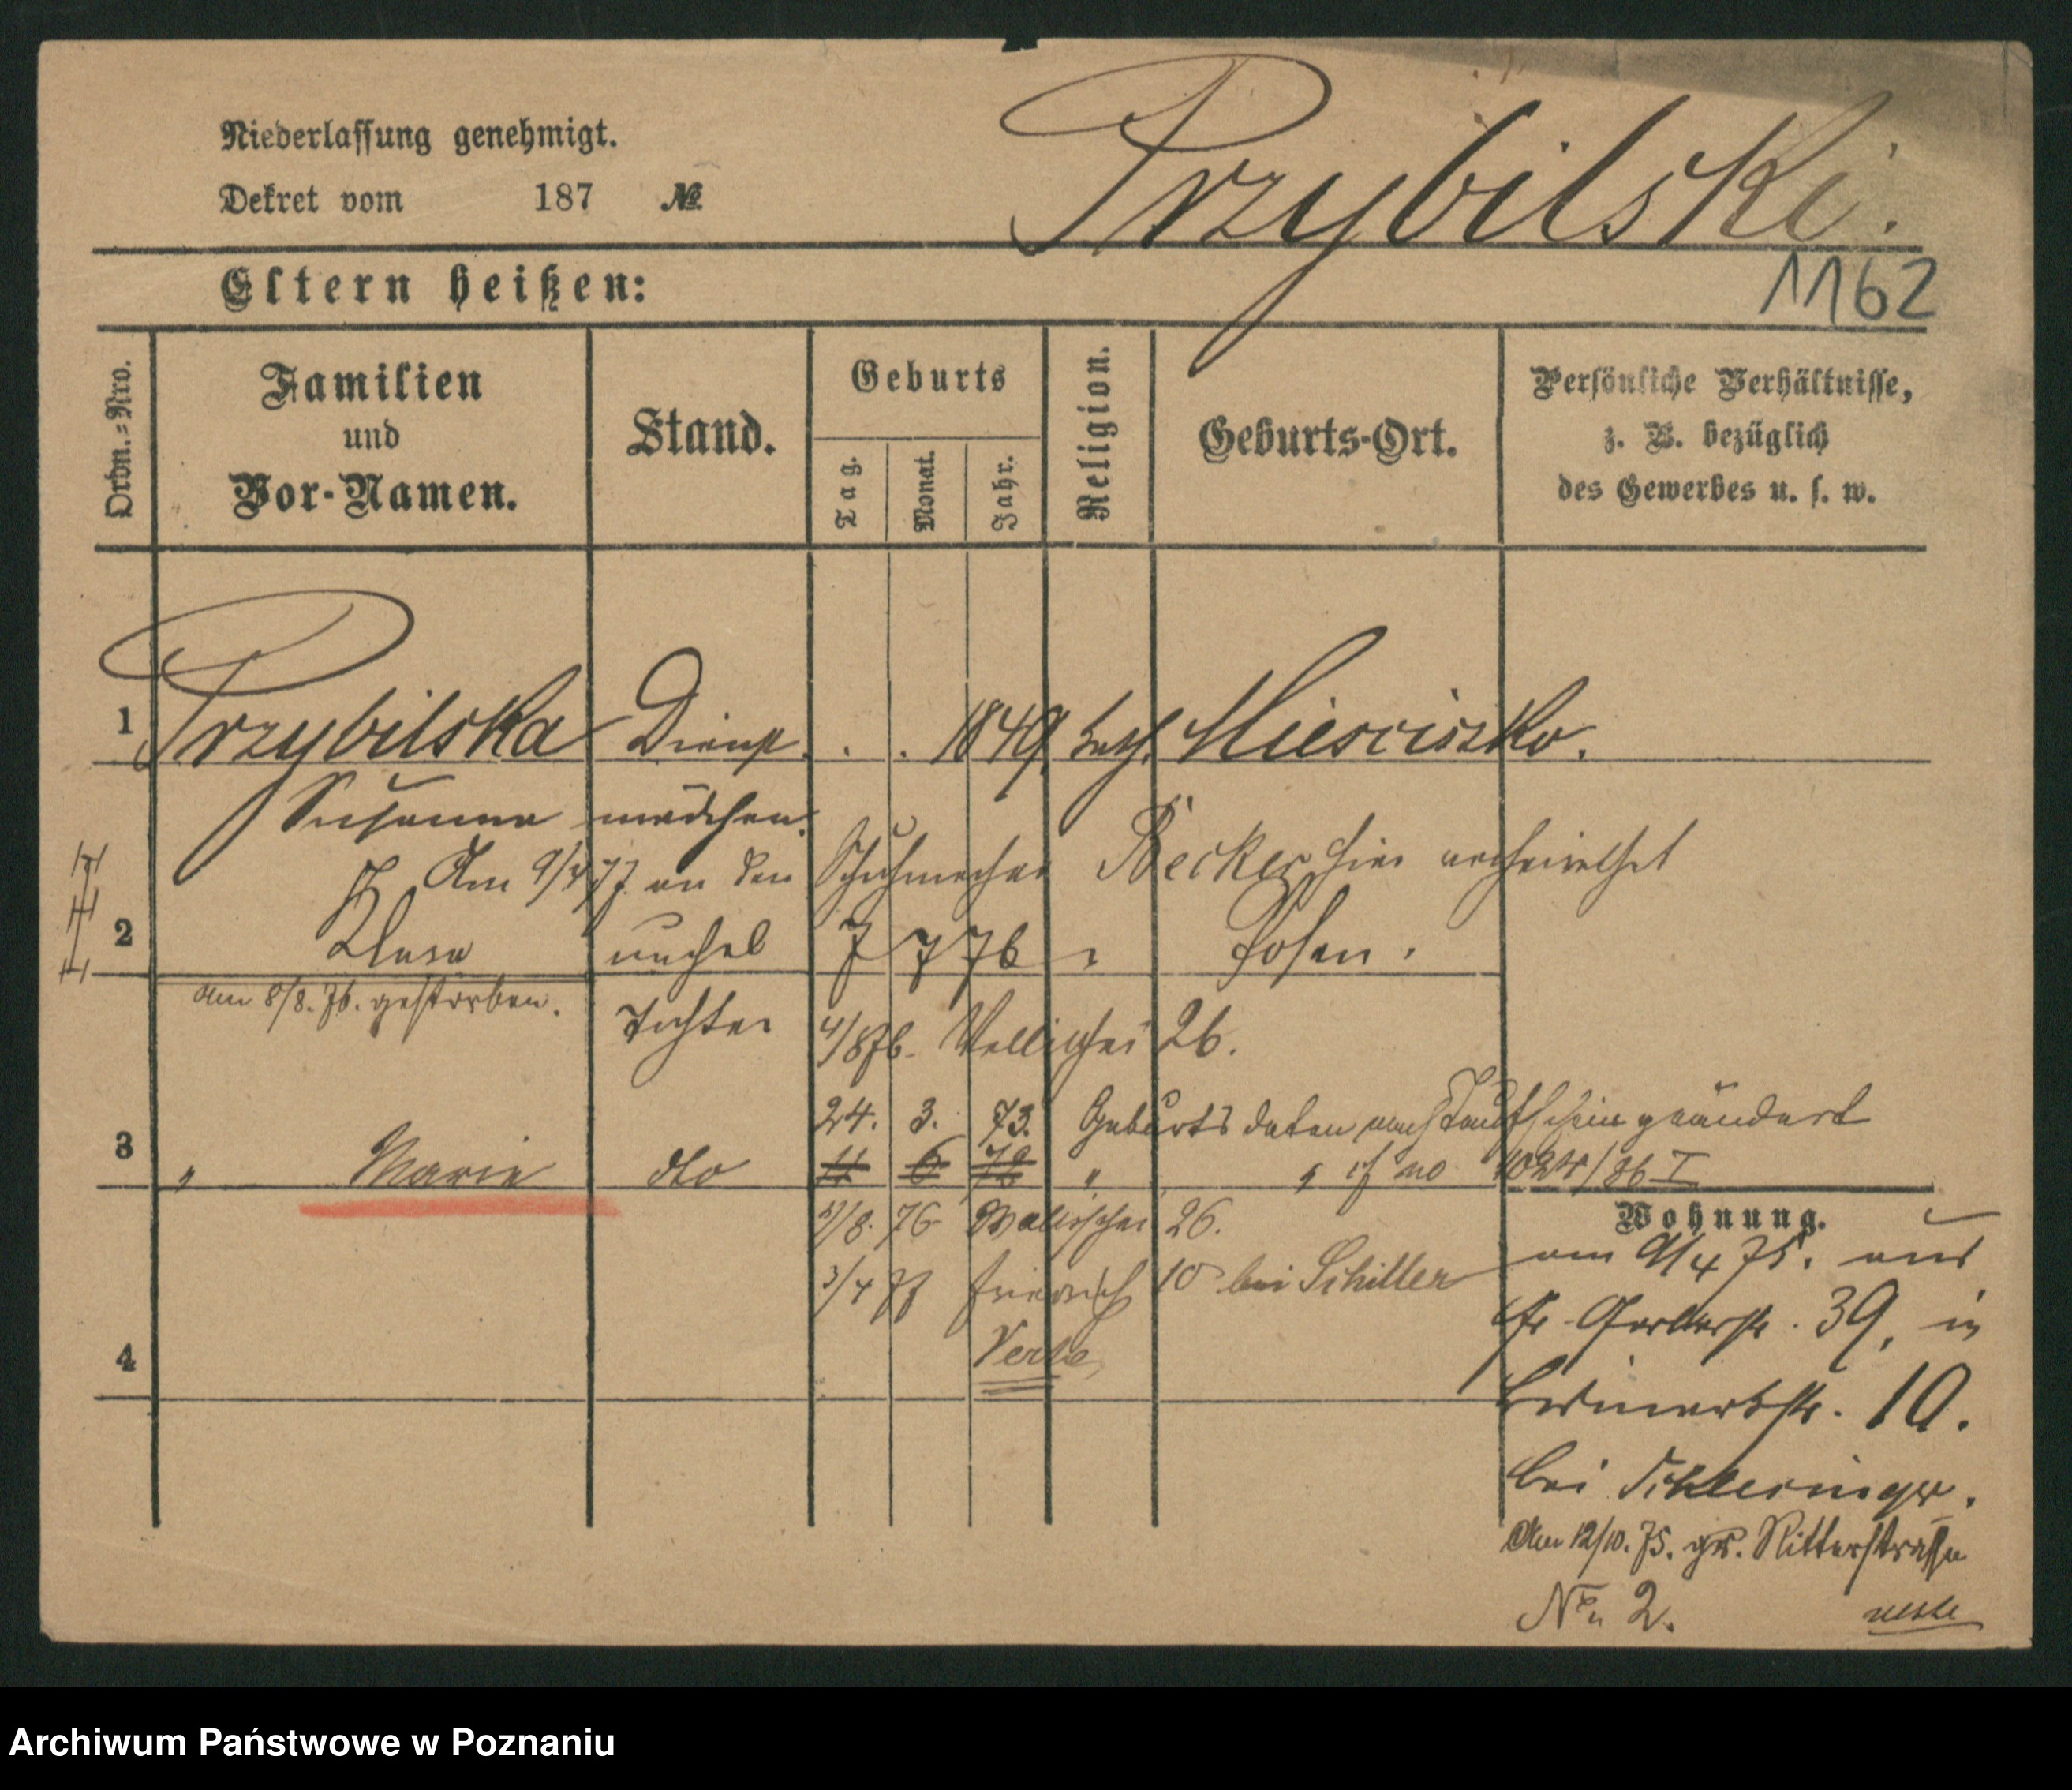 Niederlassung genehmigt.
Dekret vom 187 №
Przybilski.
Eltern heißen:
1162
Ordn.-Nro.
Familien
und
Vor-Namen.
Stand.
Geburts
Tag.
Monat.
Jahr.
Religion.
Geburts-Ort.
Persönliche Verhältnisse,
z. B. bezüglich
des Gewerbes u. s. w.
1 Przybilska Dienst . . 1849 kath. Miescisko.
Susanna mädchen.
Am 9/4 77. an den Schuhmacher Becker hier verheirathet
2 unehel 7 7 76 " Posen.
am 8/8. 76. gestorben.
Tochter 4/8 76. Wallischei 26.
24. 3. 73. Geburtsdaten nach Taufschein geändert
3 " Marie dto 11 6 72 " "
/8. 76 Wallischei 26.
3/4 77 10 bei Schiller
4
Wohnung.
am 75. aus
gr. Gerberstr. 39, in
10.
bei Schlesinger.
Am 12/10. 75. gr. Ritterstraße
No. 2.
Archiwum Państwowe w Poznaniu